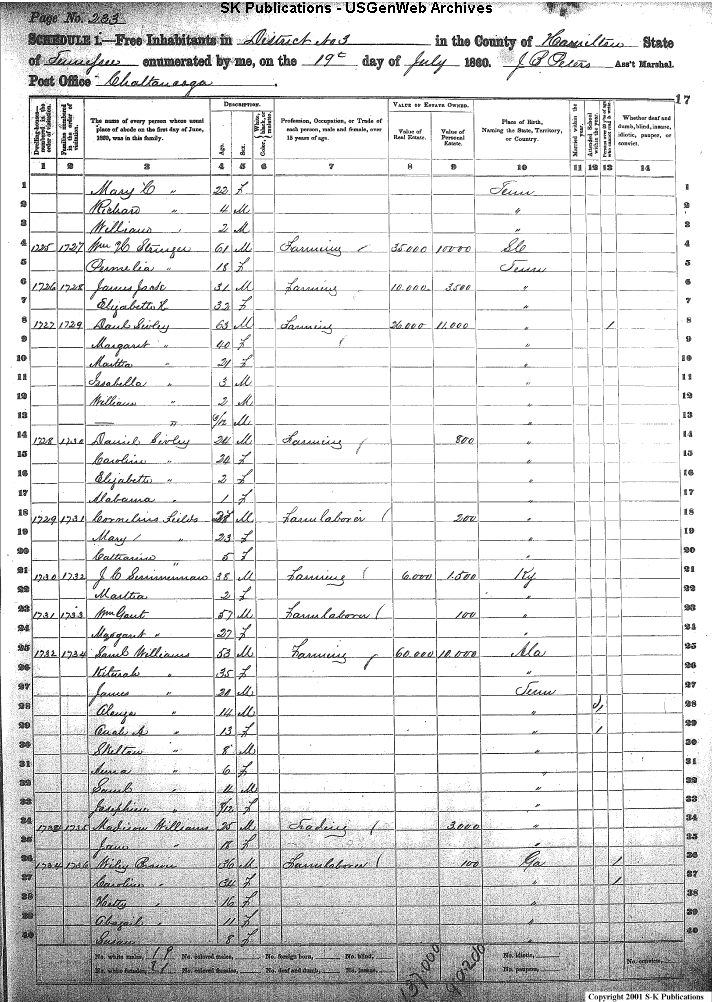 SK Publications - USGenWeb Archives
Page No. 233
SCHEDULE 1.—Free Inhabitants in District No 3 in the County of Hamilton State
of Tennessee enumerated by me, on the 19th day of July 1860. J. C. Peters Ass't Marshal.
Post Office Chattanooga.
17
Dwelling-houses— numbered in the order of visitation.
Families numbered in the order of visitation.
The name of every person whose usual place of abode on the first day of June, 1860, was in this family.
DESCRIPTION.
Age.
Sex.
Color, White, black, or mulatto.
Profession, Occupation, or Trade of each person, male and female, over 15 years of age.
VALUE OF ESTATE OWNED.
Value of Real Estate.
Value of Personal Estate.
Place of Birth, Naming the State, Territory, or Country.
Married within the year.
Attended School within the year.
Whether deaf and dumb, blind, insane, idiotic, pauper, or convict.
1 2 3 4 5 6 7 8 9 10 11 12 13 14
1 Mary C " 22 f Tenn 1
2 Richard " 4 M " 2
3 William " 2 M " 3
4 1725 1727 Wm C Stringer 61 M Farming 35000 10000 SC 4
5 Permelia " 18 f Tenn 5
6 1726 1728 James 31 M Farming 10.000 3500 " 6
7 Elizabeth 32 f " 7
8 1727 1729 Danl Sivley 63 M Farming 26,000 11,000 " 1 8
9 Margaret " 40 f " 9
10 Martha " 21 f " 10
11 Issabella " 3 M " 11
12 William " 2 M " 12
13 — " /12 M " 13
14 1728 1730 Daniel Sivley 24 M Farming 800 " 14
15 Caroline " 24 f " 15
16 Elizabeth " 2 f " 16
17 Alabama " 1 f " 17
18 1729 1731 Cornelius Fields M Farmlaborer 200 " 18
19 Mary " 23 f " 19
20 Catharine " 5 f " 20
21 1730 1732 J C 38 M Farming 6,000 1.500 Ky 21
22 Martha " 2 f " 22
23 1731 1733 Wm Gaut 57 M Farmlaborer 100 " 23
24 Margaret " 27 f " 24
25 1732 1734 Saml Williams 53 M Farming 60.000 10,000 Ala 25
26 Kiturah " 35 f " 26
27 James " 20 M Tenn 27
28 Alonzo " 14 M " 1 28
29 " 13 f " 1 29
30 Skelton " 8 M " 30
31 " 6 f " 31
32 Saml " 4 M " 32
33 Josephine " /12 f " 33
34 1733 1735 Madison Williams 25 M Trading 3.000 " 34
35 Jane " 18 f " 35
36 1734 1736 Wiley Brown 36 M Farmlaborer 100 Ga 1 36
37 Caroline " 34 f " 1 37
38 Hetty " 16 f " 38
39 Abagail " 11 f " 39
40 Susan " 8 f " 40
No. white males, 19 No. colored males, No. foreign born, No. blind, 137,000 No. idiotic, No. convicts,
No. white females, 21 No. colored females, No. deaf and dumb, No. insane, No. paupers,
Copyright 2001 S-K Publications